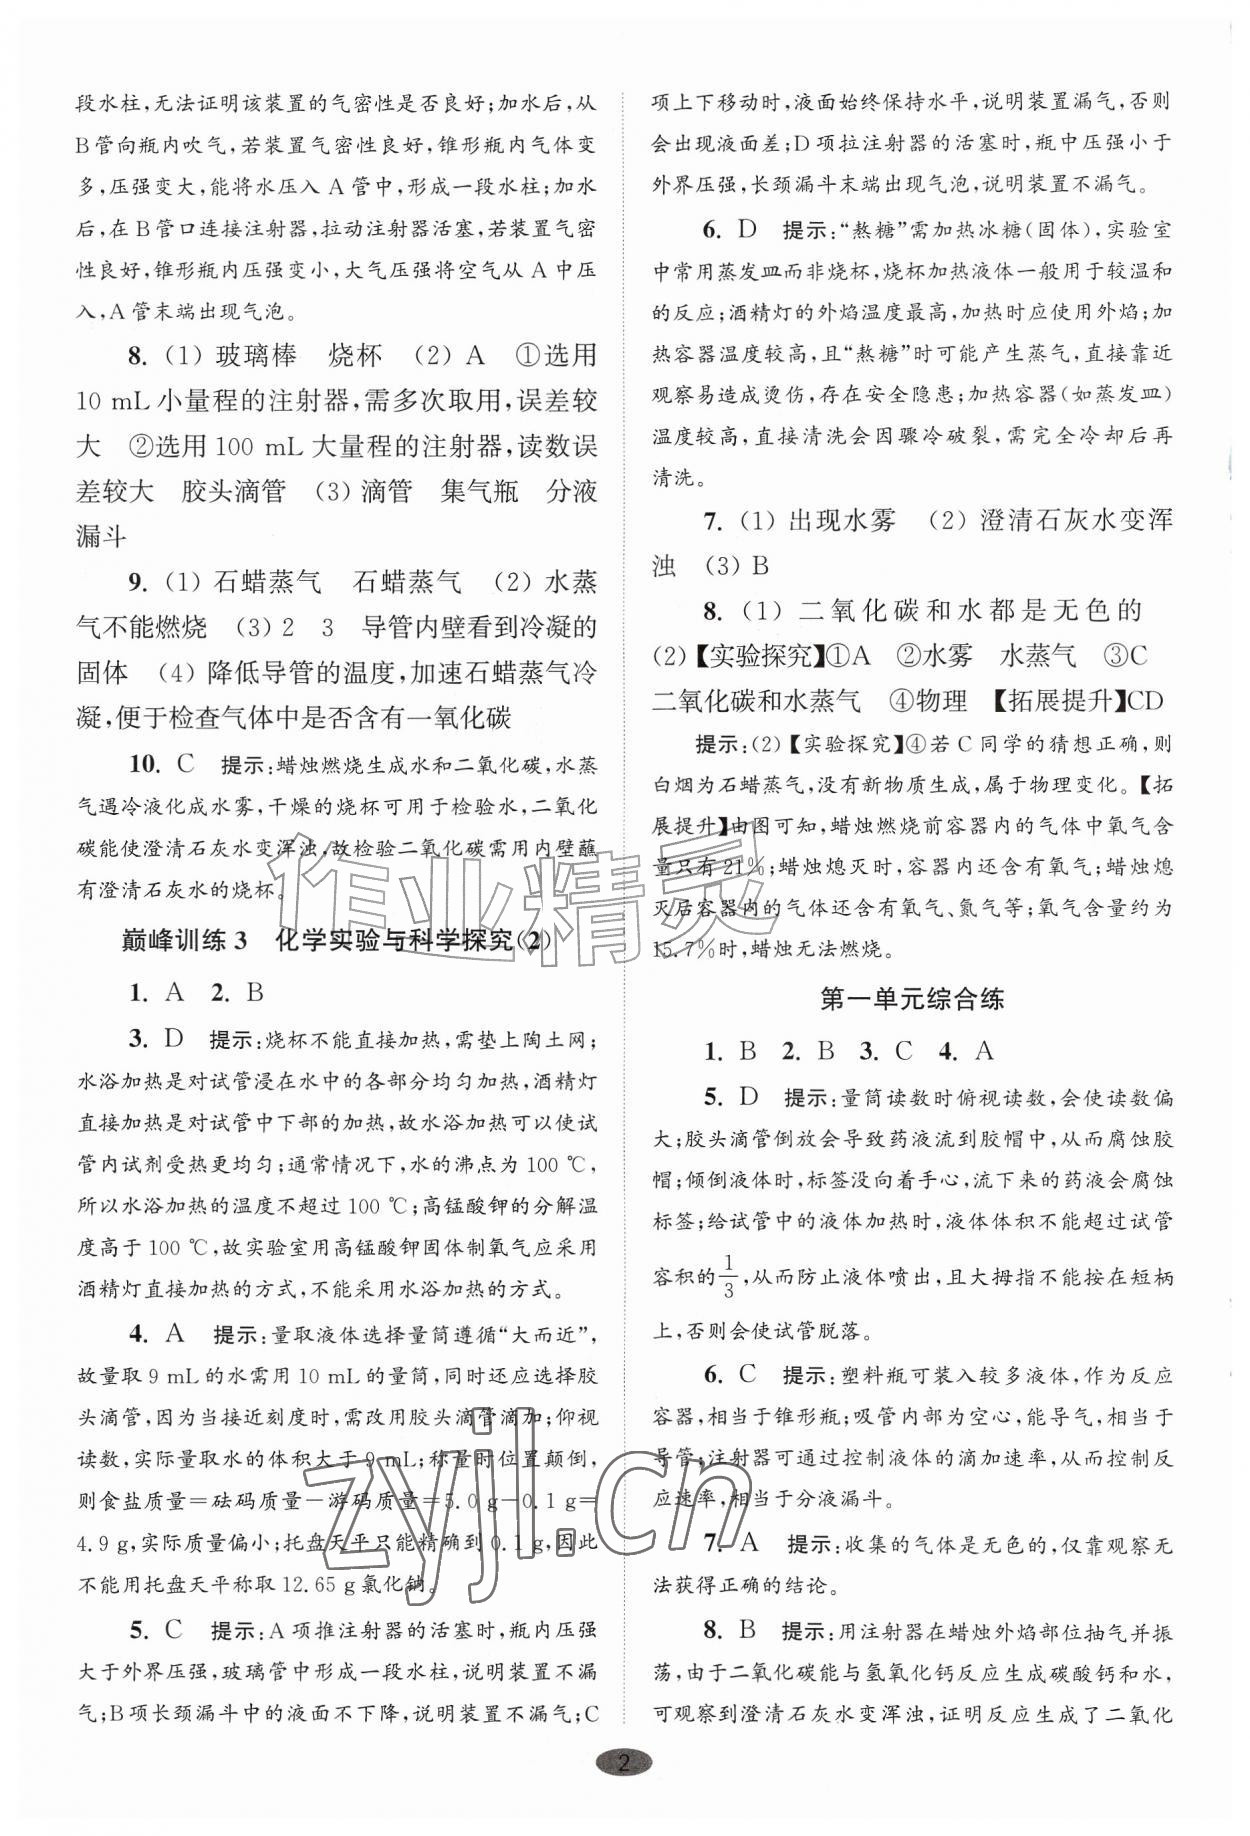 段水柱,无法证明该装置的气密性是否良好;加水后,从
B管向瓶内吹气,若装置气密性良好,锥形瓶内气体变
多,压强变大,能将水压入 A 管中,形成一段水柱;加水
后,在 B 管口连接注射器,拉动注射器活塞,若装置气密
性良好,锥形瓶内压强变小,大气压强将空气从 A 中压
入,A 管末端出现气泡。
8. (1) 玻璃棒 烧杯 (2) A ①选用
10 mL小量程的注射器,需多次取用,误差较
大 ②选用100 mL大量程的注射器,读数误
差较大 胶头滴管 (3) 滴管 集气瓶 分液
漏斗
9. (1) 石蜡蒸气 石蜡蒸气 (2) 水蒸
气不能燃烧 (3) 2 3 导管内壁看到冷凝的
固体 (4) 降低导管的温度,加速石蜡蒸气冷
凝,便于检查气体中是否含有一氧化碳
10. C 提示:蜡烛燃烧生成水和二氧化碳,水蒸
气遇冷液化成水雾,干燥的烧杯可用于检验水,二氧化
碳能使澄清石灰水变浑浊,故检验二氧化碳需用内壁蘸
有澄清石灰水的烧杯。
巅峰训练3 化学实验与科学探究(2)
1. A 2. B
3. D 提示:烧杯不能直接加热,需垫上陶土网;
水浴加热是对试管浸在水中的各部分均匀加热,酒精灯
直接加热是对试管中下部的加热,故水浴加热可以使试
管内试剂受热更均匀;通常情况下,水的沸点为 100 ℃,
所以水浴加热的温度不超过 100 ℃;高锰酸钾的分解温
度高于 100 ℃,故实验室用高锰酸钾固体制氧气应采用
酒精灯直接加热的方式,不能采用水浴加热的方式。
4. A 提示:量取液体选择量筒遵循“大而近”,
故量取 9 mL 的水需用 10 mL 的量筒,同时还应选择胶
头滴管,因为当接近刻度时,需改用胶头滴管滴加;仰视
读数,实际量取水的体积大于 9 mL;称量时位置颠倒,
则食盐质量=砝码质量-游码质量=5.0 g-0.1 g=
4.9 g,实际质量偏小;托盘天平只能精确到0.1 g,因此
不能用托盘天平称取 12.65 g 氯化钠。
5. C 提示:A 项推注射器的活塞时,瓶内压强
大于外界压强,玻璃管中形成一段水柱,说明装置不漏
气;B项长颈漏斗中的液面不下降,说明装置不漏气;C
项上下移动时,液面始终保持水平,说明装置漏气,否则
会出现液面差;D 项拉注射器的活塞时,瓶中压强小于
外界压强,长颈漏斗末端出现气泡,说明装置不漏气。
6. D 提示:“熬糖”需加热冰糖(固体),实验室
中常用蒸发皿而非烧杯,烧杯加热液体一般用于较温和
的反应;酒精灯的外焰温度最高,加热时应使用外焰;加
热容器温度较高,且“熬糖”时可能产生蒸气,直接靠近
观察易造成烫伤,存在安全隐患;加热容器(如蒸发皿)
温度较高,直接清洗会因骤冷破裂,需完全冷却后再
清洗。
7. (1) 出现水雾 (2) 澄清石灰水变浑
浊 (3) B
8. (1) 二氧化碳和水都是无色的
(2)【实验探究】①A ②水雾 水蒸气 ③C
二氧化碳和水蒸气 ④物理 【拓展提升】CD
提示:(2)【实验探究】④若 C 同学的猜想正确,则
白烟为石蜡蒸气,没有新物质生成,属于物理变化。【拓
展提升】由图可知,蜡烛燃烧前容器内的气体中氧气含
量只有 21%;蜡烛熄灭时,容器内还含有氧气;蜡烛熄
灭后容器内的气体还含有氧气、氮气等;氧气含量约为
15.7%时,蜡烛无法燃烧。
第一单元综合练
1. B 2. B 3. C 4. A
5. D 提示:量筒读数时俯视读数,会使读数偏
大;胶头滴管倒放会导致药液流到胶帽中,从而腐蚀胶
帽;倾倒液体时,标签没向着手心,流下来的药液会腐蚀
标签;给试管中的液体加热时,液体体积不能超过试管
容积的1/3,从而防止液体喷出,且大拇指不能按在短柄
上,否则会使试管脱落。
6. C 提示:塑料瓶可装入较多液体,作为反应
容器,相当于锥形瓶;吸管内部为空心,能导气,相当于
导管;注射器可通过控制液体的滴加速率,从而控制反
应速率,相当于分液漏斗。
7. A 提示:收集的气体是无色的,仅靠观察无
法获得正确的结论。
8. B 提示:用注射器在蜡烛外焰部位抽气并振
荡,由于二氧化碳能与氢氧化钙反应生成碳酸钙和水,
可观察到澄清石灰水变浑浊,证明反应生成了二氧化
作业精灵
zyjl.cn
2